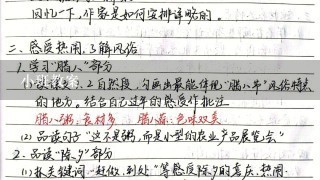 回忆一下,作家是如何安排详略的。
二、感受热闹,了解风俗
1.学习“腊八”部分
、2自然段,勾画出最能体现“腊八节”风俗特点
的地方。结合自己过年的感受作批注
腊八粥:食材多 腊八蒜:色味双美
(2)品读句子“这不是粥,而是小型的农业产品展览会”
2.品读“除夕”部分
(1)抓关键词“赶做,到处”等感受除夕的喜庆、热闹.